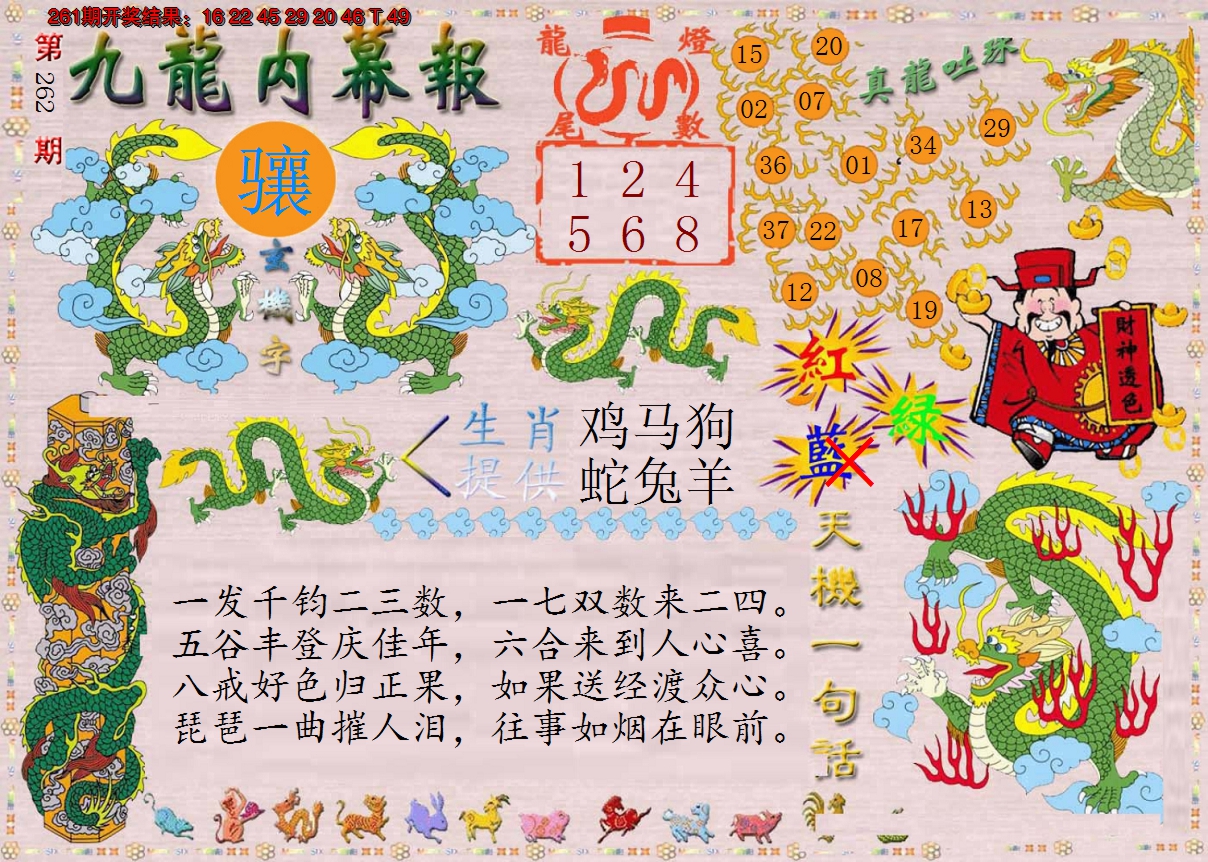 261期开奖结果：16 22 45 29 20 46 T 49
第262期
九龍内幕報
骧
玄機字
龍燈
尾數
1 2 4
5 6 8
真龍吐珠
15 20
02 07
36 01 34 29
37 22 17 13
12 08 19
紅
綠
藍
財神透色
生肖 鸡马狗
提供 蛇兔羊
天機一句话
一发千钧二三数，一七双数来二四。
五谷丰登庆佳年，六合来到人心喜。
八戒好色归正果，如果送经渡众心。
琵琶一曲摧人泪，往事如烟在眼前。